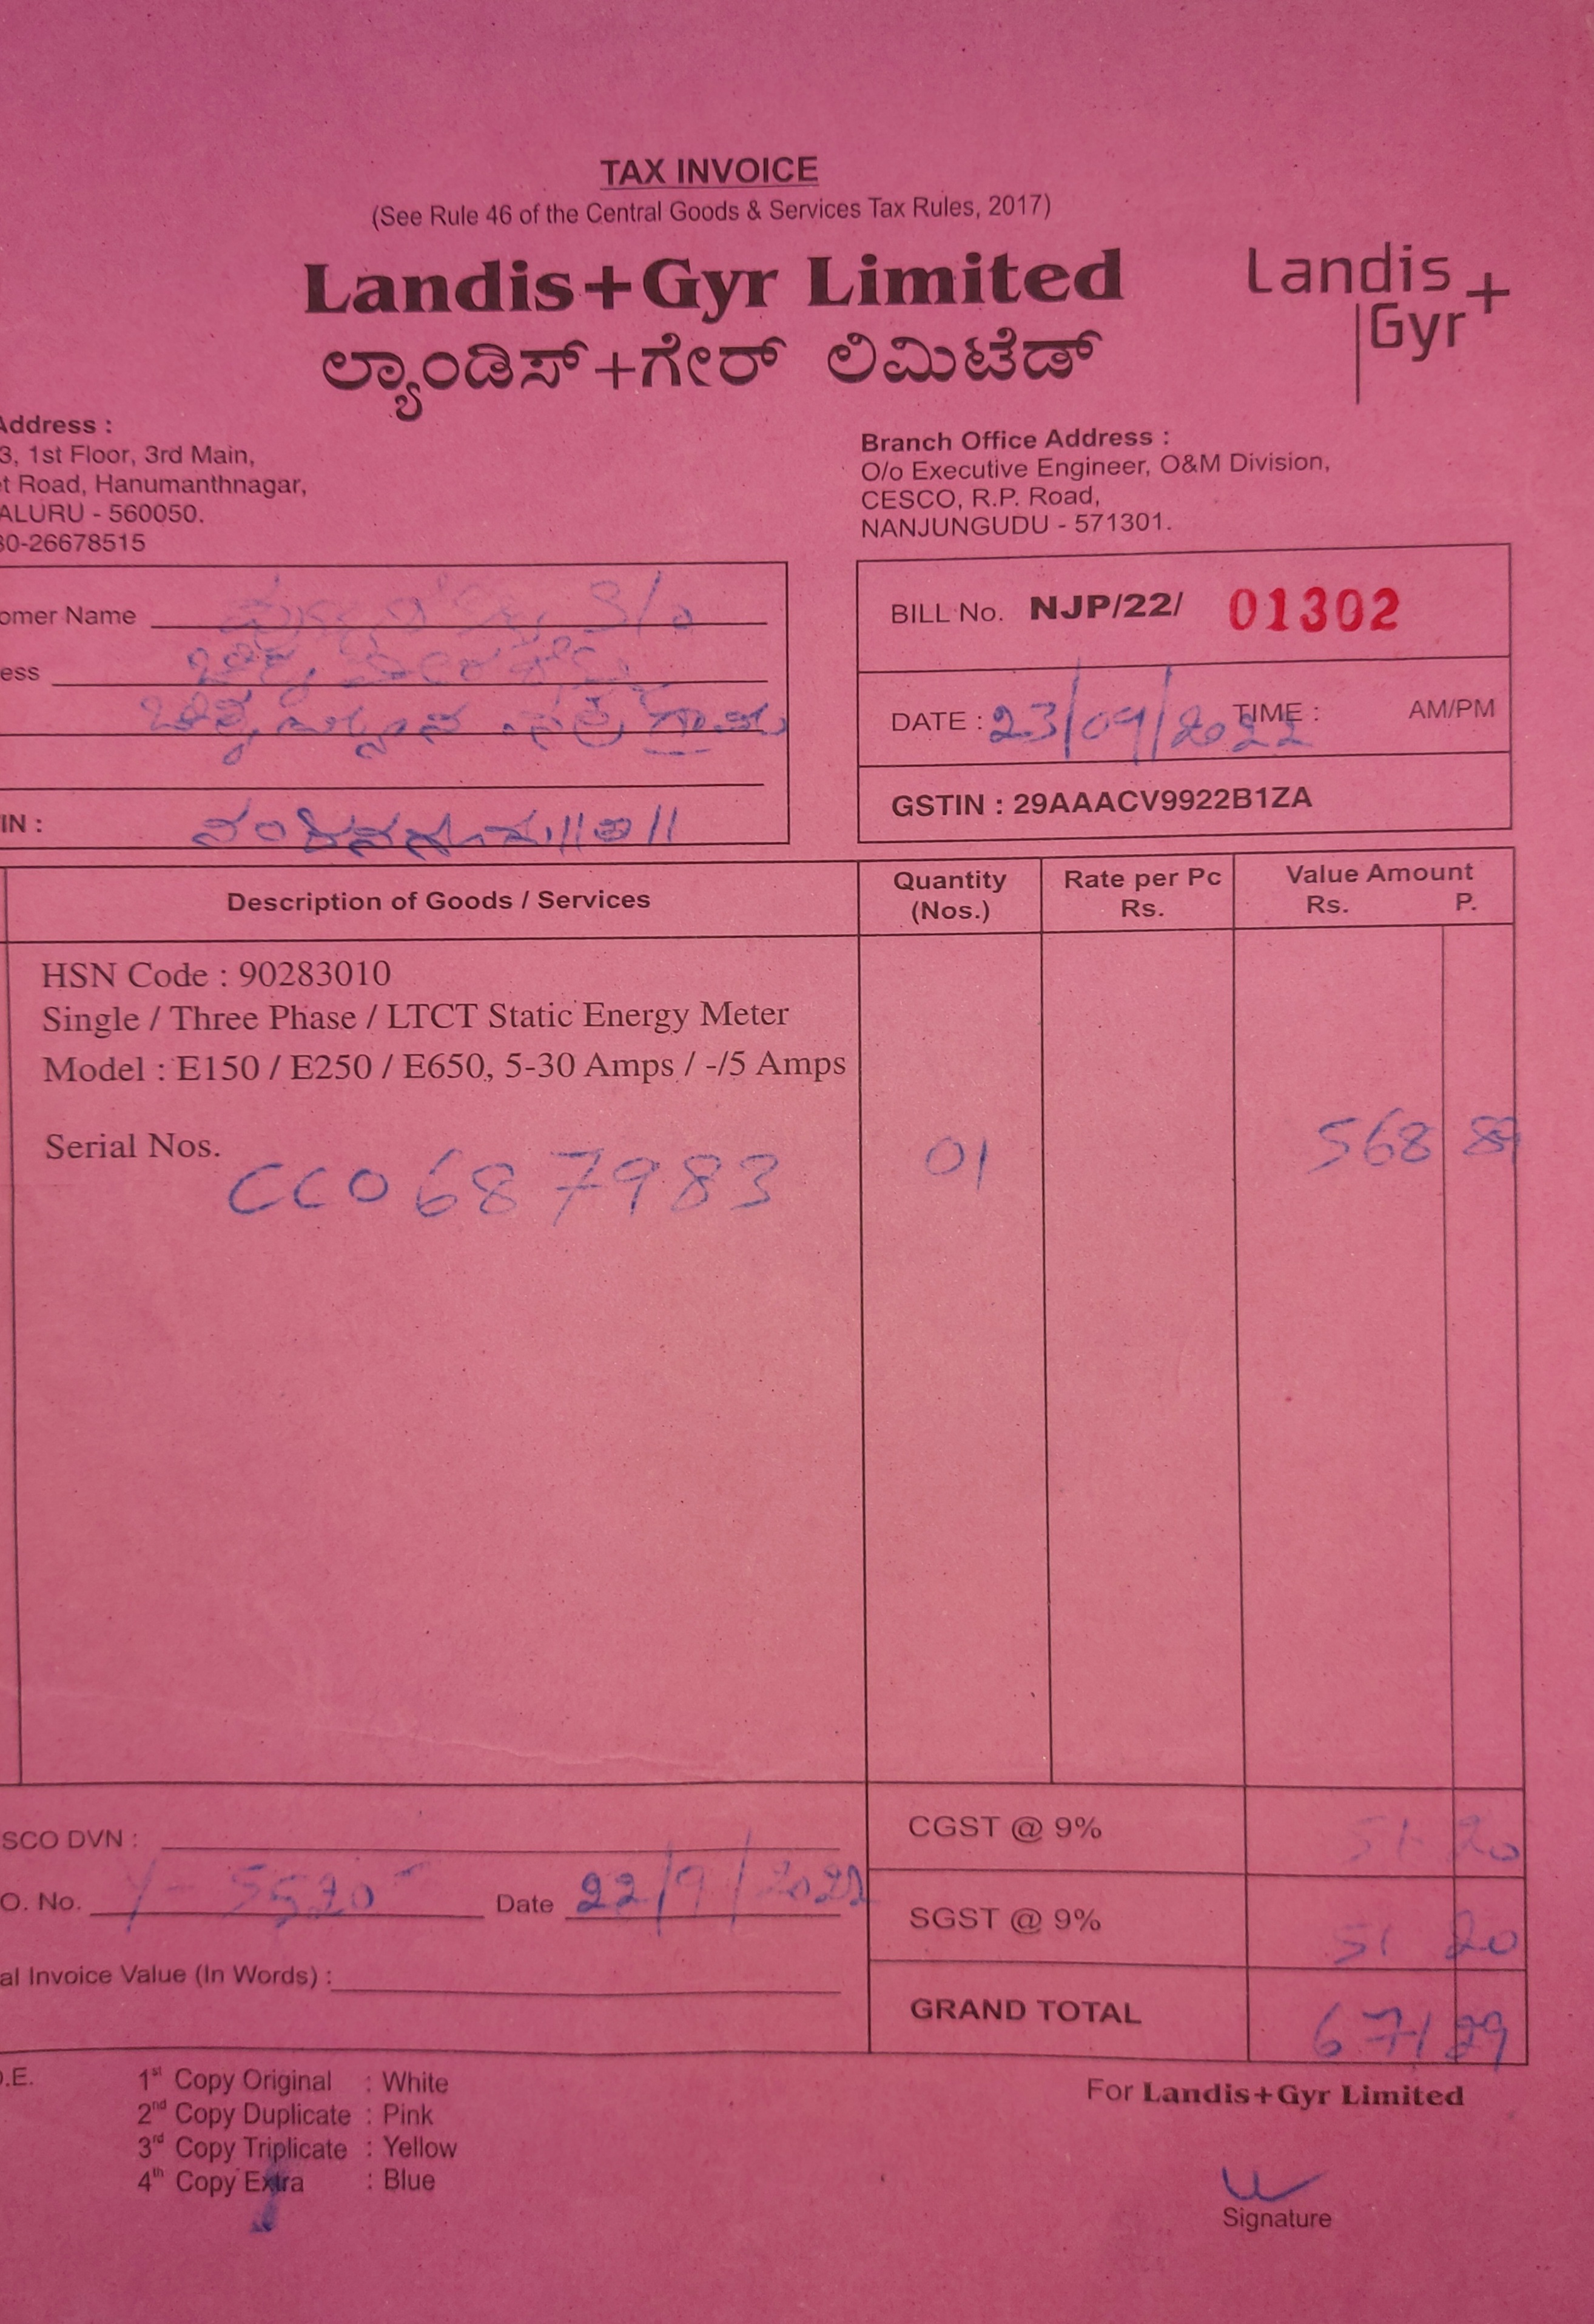 TAX INVOICE
(See Rule 46 of the Central Goods & Services Tax Rules, 2017)
Landis+Gyr Limited
Landis
Gyr+
ಲ್ಯಾಂಡಿಸ್+ಗೇರ್ ಲಿಮಿಟೆಡ್
Address :
3, 1st Floor, 3rd Main,
t Road, Hanumanthnagar,
ALURU - 560050.
80-26678515
Branch Office Address :
O/o Executive Engineer, O&M Division,
CESCO, R.P. Road,
NANJUNGUDU - 571301.
omer Name S/o
ess
IN :
BILL No. NJP/22/ 01302
DATE : 23/09/2022 TIME : AM/PM
GSTIN : 29AAACV9922B1ZA
Description of Goods / Services
Quantity
(Nos.)
Rate per Pc
Rs.
Value Amount
Rs. P.
HSN Code : 90283010
Single / Three Phase / LTCT Static Energy Meter
Model : E150 / E250 / E650, 5-30 Amps / -/5 Amps
Serial Nos. CC0687983 01 568 89
SCO DVN :
O. No. Date 22/9/2022
al Invoice Value (In Words) :
CGST @ 9% 51 20
SGST @ 9% 51 20
GRAND TOTAL 671 29
O.E.
1st Copy Original : White
2nd Copy Duplicate : Pink
3rd Copy Triplicate : Yellow
4th Copy Extra : Blue
For Landis+Gyr Limited
Signature